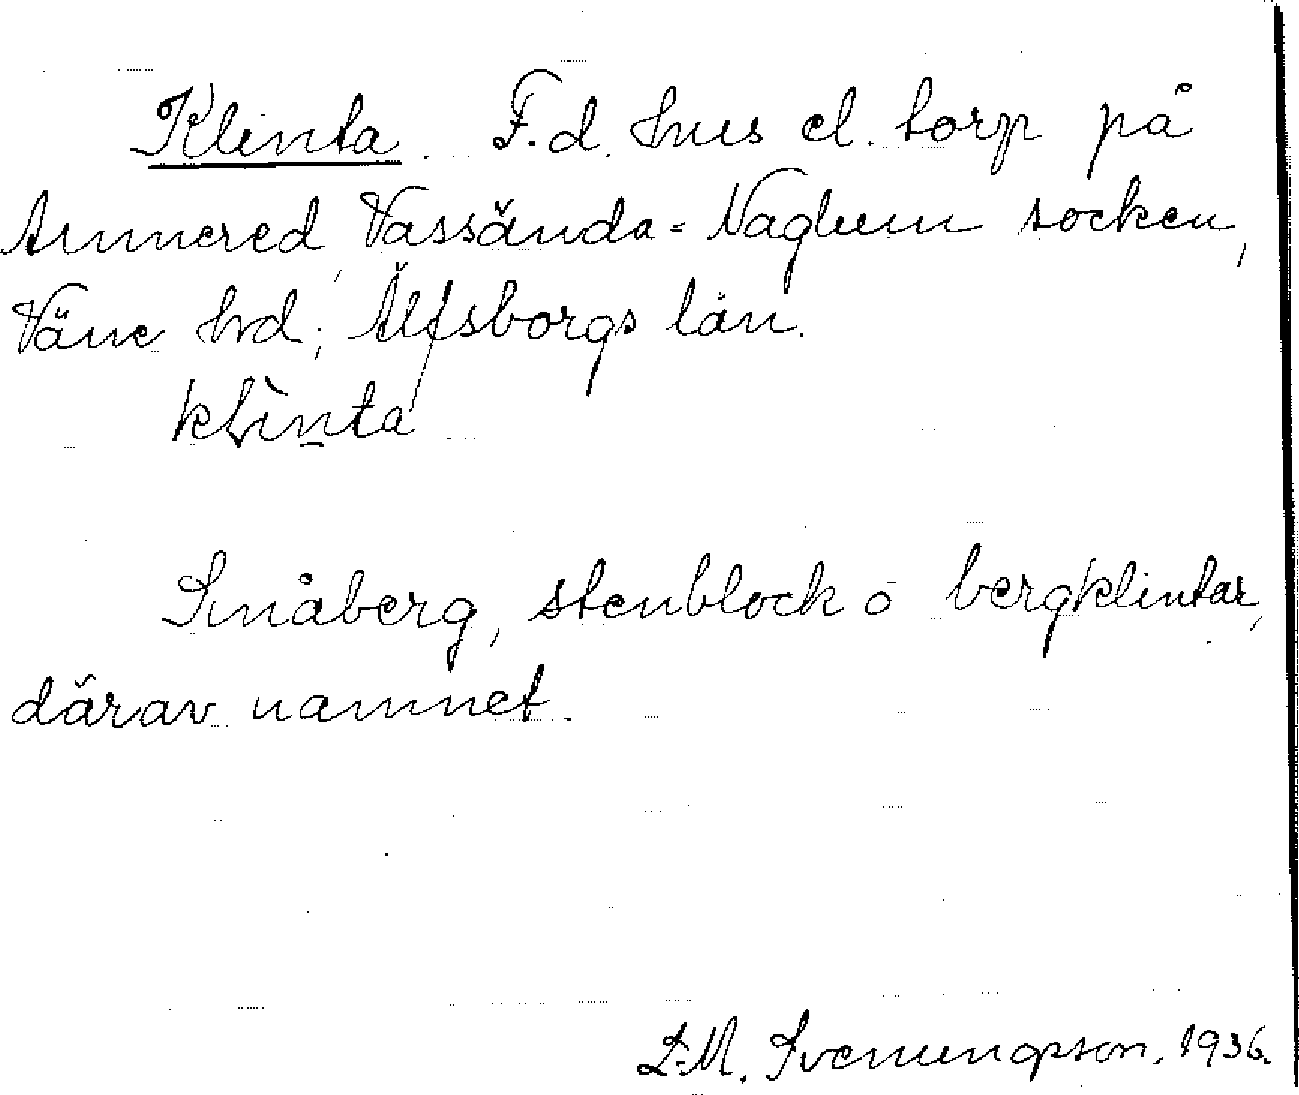 Klinta. F.d. hus el. torp på
Annered, Vassända-Naglum socken,
Väne hrd; Älfsborgs län.
klìnta
Småberg, stenblock o bergklintar,
därav namnet.
D.M. Svenungsson. 1936.